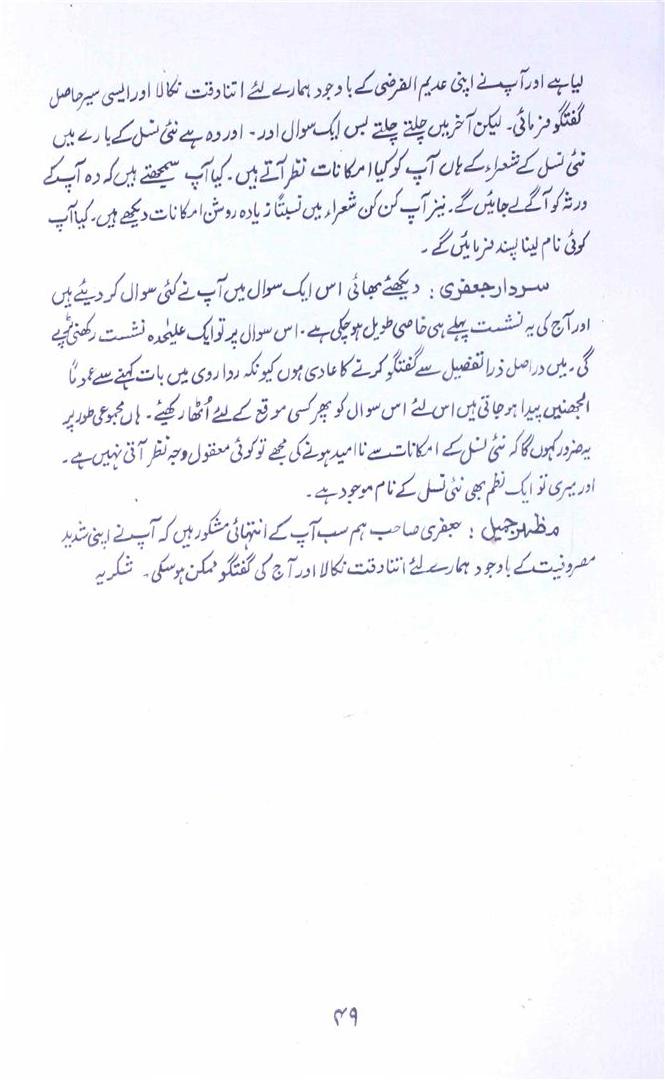 لیا ہے اور آپ نے اپنی عدیم الفرضی کے باوجود ہمارے لئے اتنا وقت نکالا اور ایسی سیر حاصل
گفتگو فرمائی۔ لیکن آخر میں چلتے چلتے بس ایک سوال اور۔ اور وہ ہے نئی نسل کے بارے میں
نئی نسل کے شعراء کے ہاں آپ کو کیا امکانات نظر آتے ہیں۔ کیا آپ سمجھتے ہیں کہ وہ آپ کے
ورثہ کو آگے لے جائیں گے۔ نیز آپ کن کن شعراء میں نسبتاً زیادہ روشن امکانات دیکھے ہیں۔ کیا آپ
کوئی نام لینا پسند فرمائیں گے۔
سردار جعفری: دیکھئے بھائی اس ایک سوال میں آپ نے کئی سوال کر دیئے ہیں
اور آج کی یہ نشست پہلے ہی خاصی طویل ہو چکی ہے۔ اس سوال پر تو ایک علیٰحدہ نشست رکھنی پڑے
گی۔ میں دراصل ذرا تفصیل سے گفتگو کرنے کا عادی ہوں کیونکہ رواروی میں بات کہنے سے عموماً
الجھنیں پیدا ہو جاتی ہیں اس لئے اس سوال کو پھر کسی موقع کے لئے اُٹھا رکھیئے۔ ہاں مجموعی طور پر
یہ ضرور کہوں گا کہ نئی نسل کے امکانات سے ناامید ہونے کی مجھے تو کوئی معقول وجہ نظر آتی نہیں ہے۔
اور میری تو ایک نظم بھی نئی نسل کے نام موجود ہے۔
مظہر جمیل: جعفری صاحب ہم سب آپ کے انتہائی مشکور ہیں کہ آپ نے اپنی شدید
مصروفیت کے باوجود ہمارے لئے اتنا وقت نکالا اور آج کی گفتگو ممکن ہو سکی۔ شکریہ
۴۹